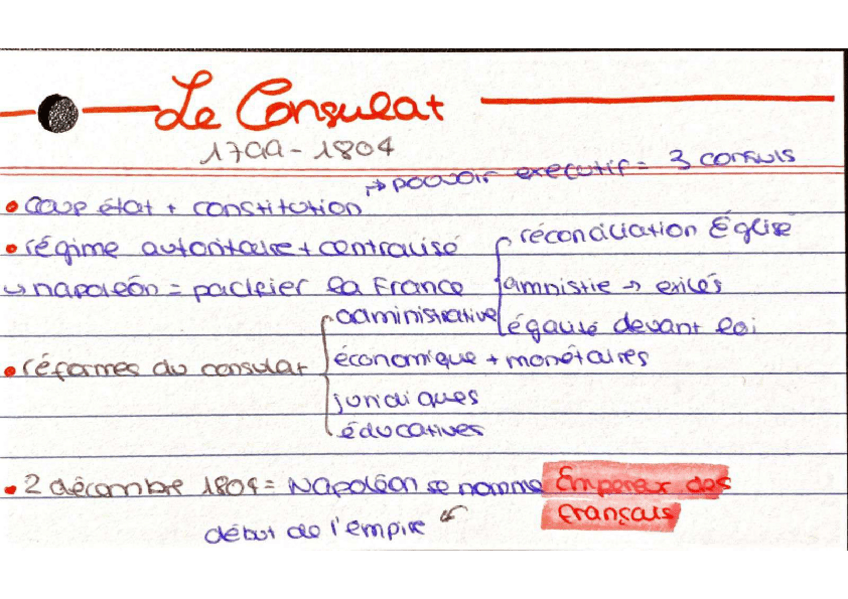 Le Consulat
1799 - 1804
↳ pouvoir executif = 3 consuls
• coup état + constitution
• régime autoritaire + centralisé
réconciliation Église
↳ napoléon = pacifier la France
amnistie → exilés
administrative
égalité devant loi
• réformes du consulat
économique + monétaires
juridiques
éducatives
• 2 décembre 1804 = Napoléon se nomme Empereur des
français
début de l'empire